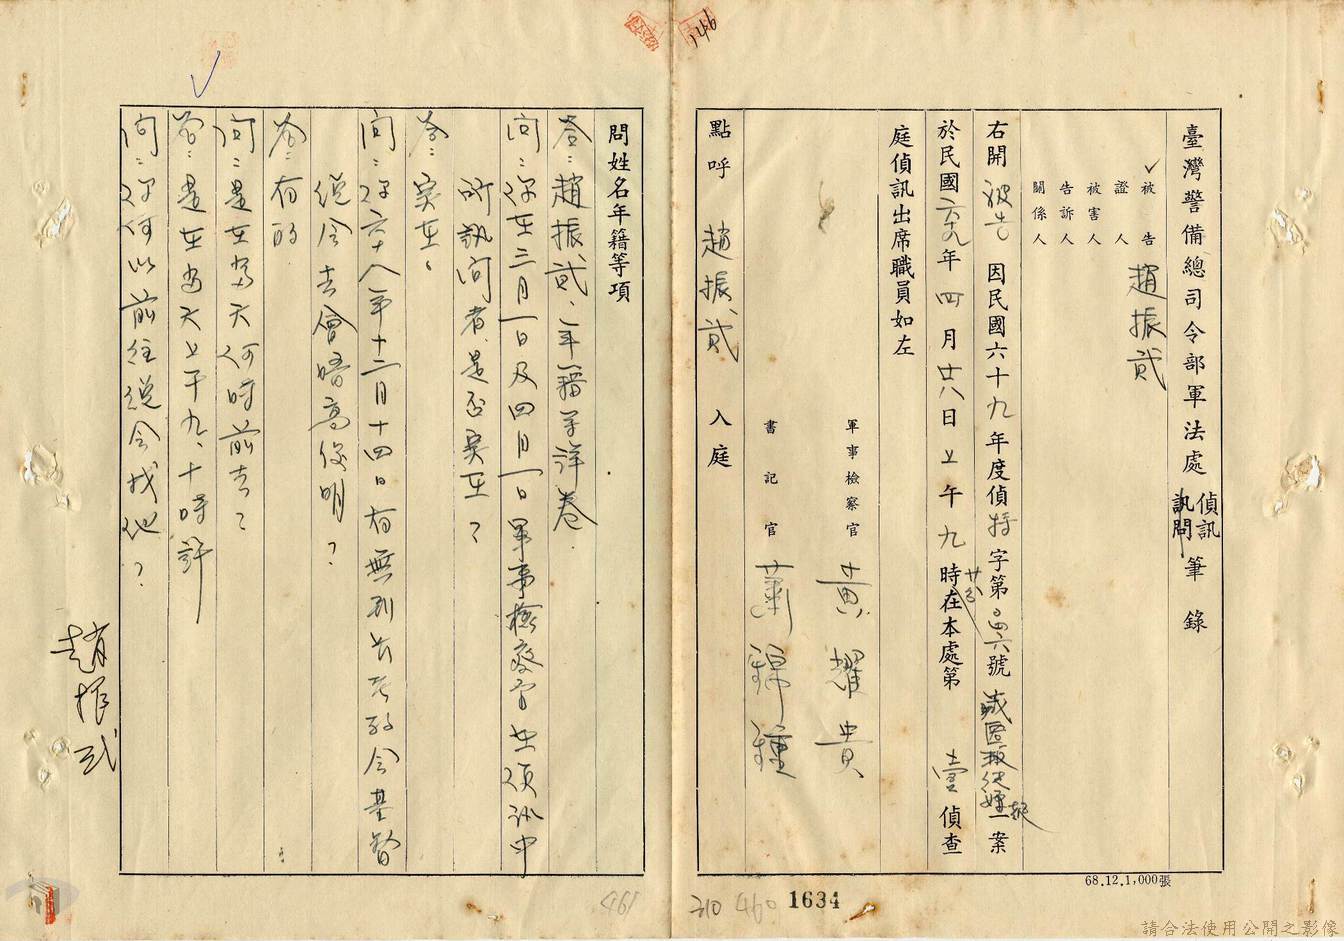 146
臺灣警備總司令部軍法處偵訊訊問筆錄
被告 趙振貳
證人
被害人
告訴人
關係人
右開被告因民國六十九年度偵特字第 號 一案
於民國六十九年四月廿八日上午九時 在本處第壹偵查
庭偵訊出席職員如左
軍事檢察官 黃耀貴
書記官 蕭錦鍾
點呼 趙振貳 入庭
問姓名年籍等項
答:趙振貳、年籍等詳卷.
問:你在三月一日及四月一日軍事檢察官 偵訊中
所訊問者是否實在?
答:實在。
問:你六十八年十二月十四日有無到長老教會基督
總會去會晤高俊明?
答:有的
問:是在當天何時前去?
答:是在當天上午九、十時許
問:你何以前往總會找他?
趙振貳
68.12.1,000張
1634
210 460
461
請合法使用公開之影像